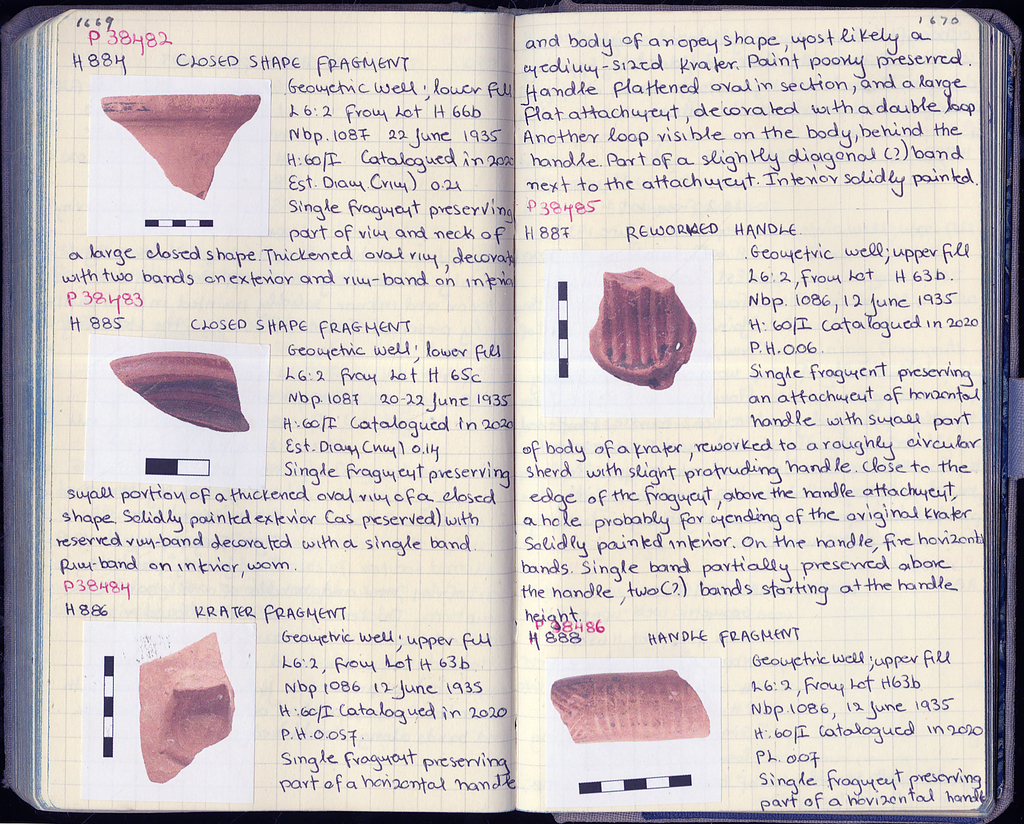 1669
P 38482
H 884 CLOSED SHAPE FRAGMENT
Geometric well; lower fill
L6:2 from Lot H 66b
Nbp. 1087 22 June 1935
H:60/I Catalogued in 2020
Est. Diam (rim) 0.21
Single fragment preserving
part of rim and neck of
a large closed shape. Thickened oval rim, decorat
with two bands on exterior and rim-band on interio
P 38483
H 885 CLOSED SHAPE FRAGMENT
Geometric well; lower fill
L6:2 from Lot H 65c
Nbp. 1087 20-22 June 1935
H:60/I Catalogued in 2020
Est. Diam (rim) 0.14
Single fragment preserving
small portion of a thickened oval rim of a closed
shape. Solidly painted exterior (as preserved) with
reserved rim-band decorated with a single band.
Rim-band on interior, worn.
P 38484
H 886 KRATER FRAGMENT
Geometric well; upper fill
L6:2, from Lot H 63b
Nbp 1086 12 June 1935
H:60/I Catalogued in 2020
P.H. 0.057.
Single fragment preserving
part of a horizontal handle
1670
and body of an open shape, most likely a
medium-sized krater. Paint poorly preserved.
Handle flattened oval in section, and a large
flat attachment, decorated with a double loop
Another loop visible on the body, behind the
handle. Part of a slightly diagonal (?) band
next to the attachment. Interior solidly painted.
P 38485
H 887 REWORKED HANDLE.
Geometric well; upper fill
L6:2, from Lot H 63b.
Nbp. 1086, 12 June 1935
H:60/I Catalogued in 2020
P.H. 0.06.
Single fragment preserving
an attachment of horizontal
handle with small part
of body of a krater, reworked to a roughly circular
sherd with slight protruding handle. Close to the
edge of the fragment, above the handle attachment,
a hole probably for mending of the original krater
Solidly painted interior. On the handle, five horizont
bands. Single band partially preserved above
the handle, two (?) bands starting at the handle
height.
P 38486
H 888 HANDLE FRAGMENT
Geometric well; upper fill
L6:2, from Lot H63b
Nbp. 1086, 12 June 1935
H:60/I Catalogued in 2020
P.L. 0.07
Single fragment preserving
part of a horizontal handle